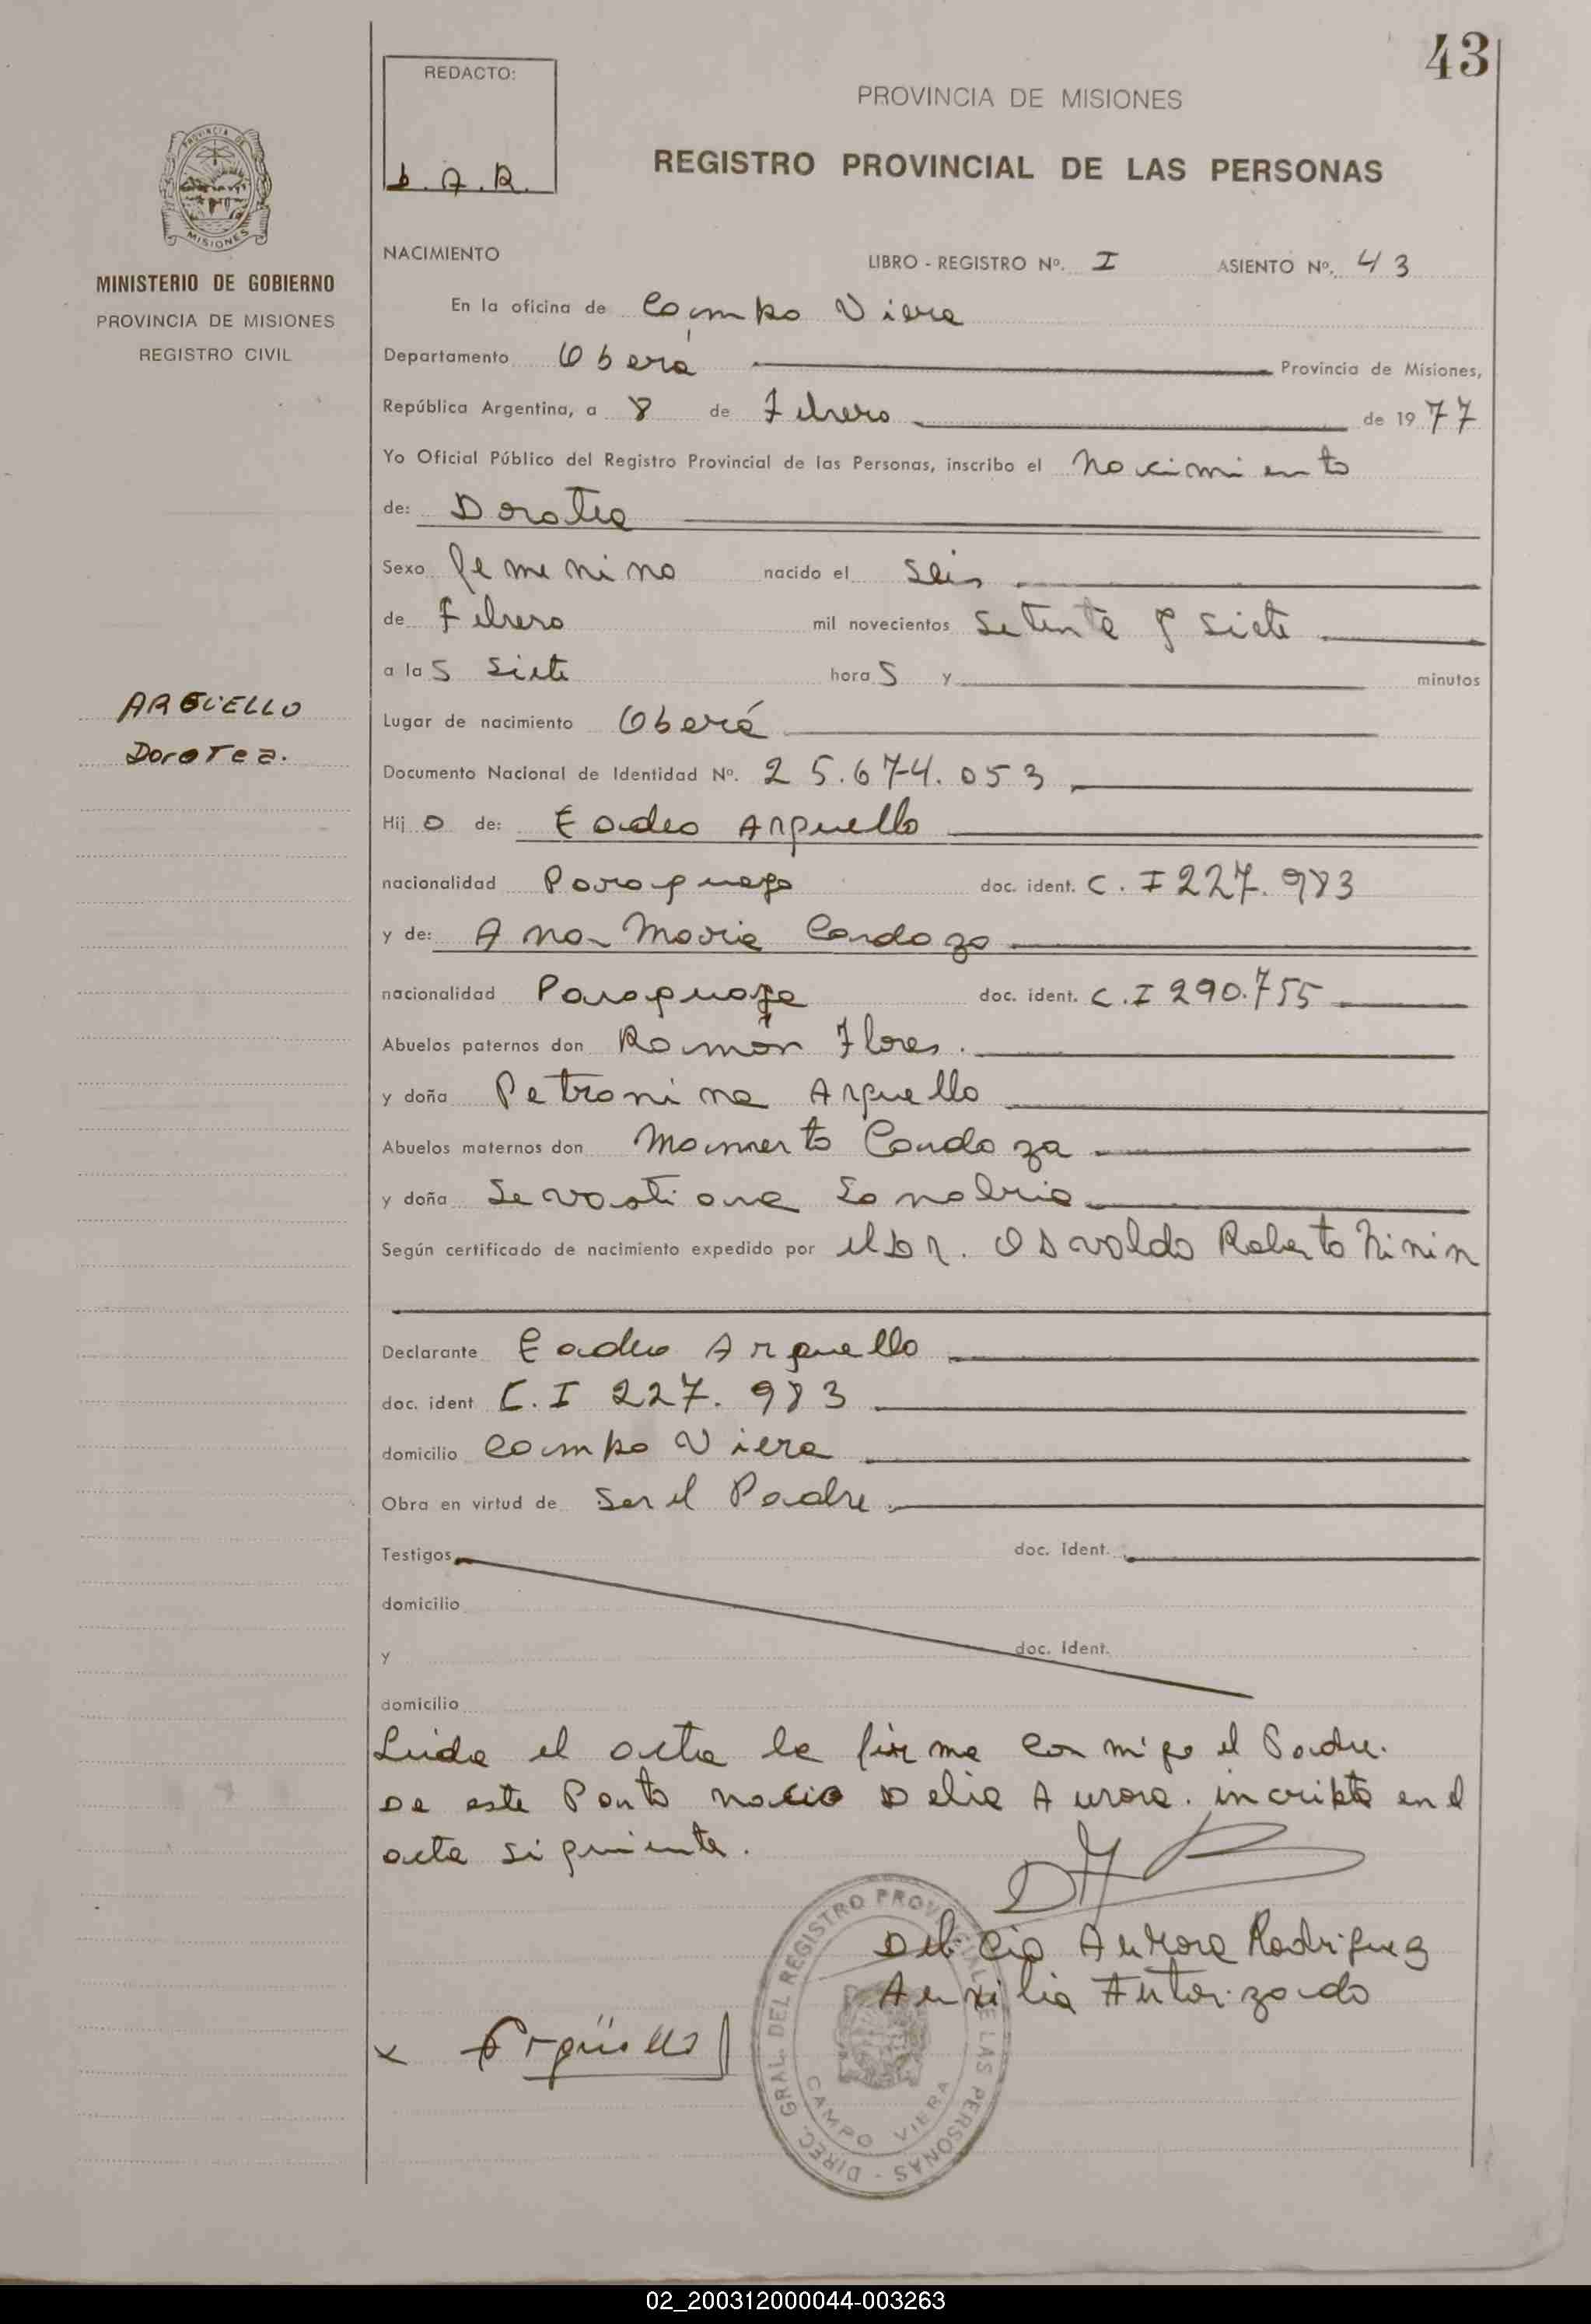 43
REDACTO:
D.A.R.
PROVINCIA DE MISIONES
REGISTRO PROVINCIAL DE LAS PERSONAS
PROVINCIA DE
MISIONES
MINISTERIO DE GOBIERNO
PROVINCIA DE MISIONES
REGISTRO CIVIL
NACIMIENTO LIBRO - REGISTRO Nº. I ASIENTO Nº. 43
En la oficina de Campo Viera
Departamento Oberá Provincia de Misiones,
República Argentina, a 8 de Febrero de 1977
Yo Oficial Público del Registro Provincial de las Personas, inscribo el Nacimiento
de: Dorotea
Sexo femenino nacido el seis
de Febrero mil novecientos setenta y siete
a las siete horas y minutos
ARGUELLO
Dorotea.
Lugar de nacimiento Oberá
Documento Nacional de Identidad Nº. 25.674.053
Hijo de: Eadeo Arguello
nacionalidad Paraguaya doc. ident. C.I 227.983
y de: Ana Maria Cardozo
nacionalidad Paraguaya doc. ident. C.I 290.755
Abuelos paternos don Ramón Flores.
y doña Petronina Arguello
Abuelos maternos don Mamerto Cardoza
y doña Sevastiana Sanabria
Según certificado de nacimiento expedido por el Dr. Osvaldo Roberto Ninin
Declarante Eadeo Arguello
doc. ident C.I 227.983
domicilio Campo Viera
Obra en virtud de Ser el Padre.
Testigos doc. ident.
domicilio
y doc. ident.
domicilio
Leida el acta la firma con migo el Padre.
De este Parto nacio Delia Aurora. incripta en el
acta siguiente.
Delicia Aurora Rodriguez
Auxilia Autorizado
x Argüello
DIREC. GRAL. DEL REGISTRO PROVINCIAL DE LAS PERSONAS -
CAMPO VIERA
02_200312000044-003263